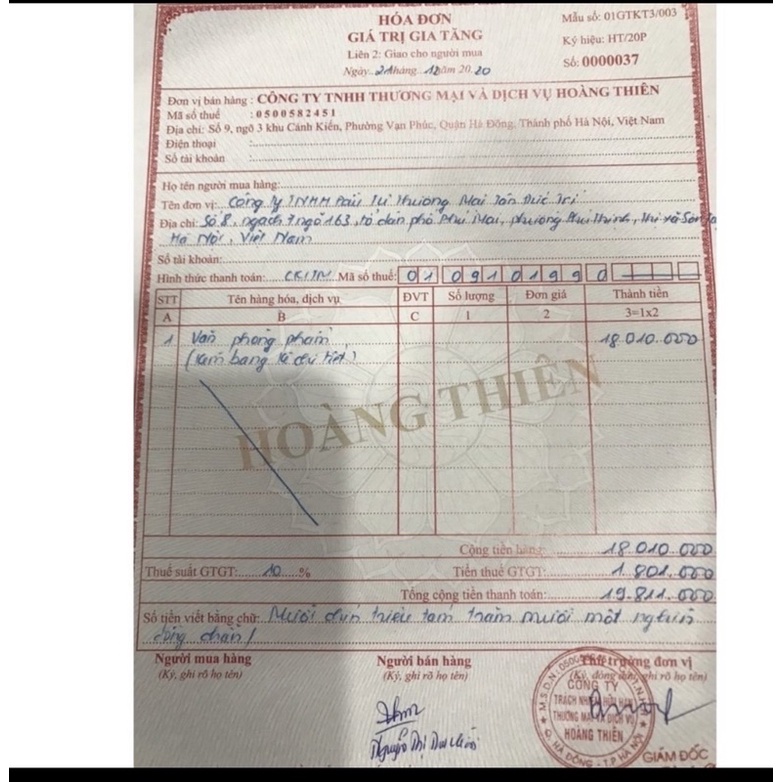 HÓA ĐƠN
GIÁ TRỊ GIA TĂNG
Liên 2: Giao cho người mua
Ngày 21 tháng 12 năm 2020
Mẫu số: 01GTKT3/003
Ký hiệu: HT/20P
Số: 0000037
Đơn vị bán hàng : CÔNG TY TNHH THƯƠNG MẠI VÀ DỊCH VỤ HOÀNG THIÊN
Mã số thuế : 0500582451
Địa chỉ: Số 9, ngõ 3 khu Cánh Kiến, Phường Vạn Phúc, Quận Hà Đông, Thành phố Hà Nội, Việt Nam
Điện thoại :
Số tài khoản :
Họ tên người mua hàng:
Tên đơn vị: Công ty TNHH Đầu Tư Thương Mại Tân Đức Trí
Địa chỉ: Số 8, ngách 7 ngõ 163, tổ dân phố Phù Mai, phường Phú Thịnh, Thị xã Sơn
Hà Nội, Việt Nam
Số tài khoản:
Hình thức thanh toán: CK/TM Mã số thuế: 0109101990
STT Tên hàng hóa, dịch vụ ĐVT Số lượng Đơn giá Thành tiền
A B C 1 2 3=1x2
1 Văn phòng phẩm 18.010.000
(Kèm bảng kê chi tiết)
HOÀNG THIÊN
Cộng tiền hàng: 18.010.000
Thuế suất GTGT: 10 % Tiền thuế GTGT: 1.801.000
Tổng cộng tiền thanh toán: 19.811.000
Số tiền viết bằng chữ: Mười chín triệu tám trăm mười một nghìn
đồng chẵn /
Người mua hàng Người bán hàng Thủ trưởng đơn vị
(Ký, ghi rõ họ tên) (Ký, ghi rõ họ tên) (Ký, đóng dấu, ghi rõ họ tên)
CÔNG TY
TRÁCH NHIỆM HỮU HẠN
THƯƠNG MẠI VÀ DỊCH VỤ
HOÀNG THIÊN
Q. HÀ ĐÔNG - T.P HÀ NỘI
Nguyễn Thị
GIÁM ĐỐC